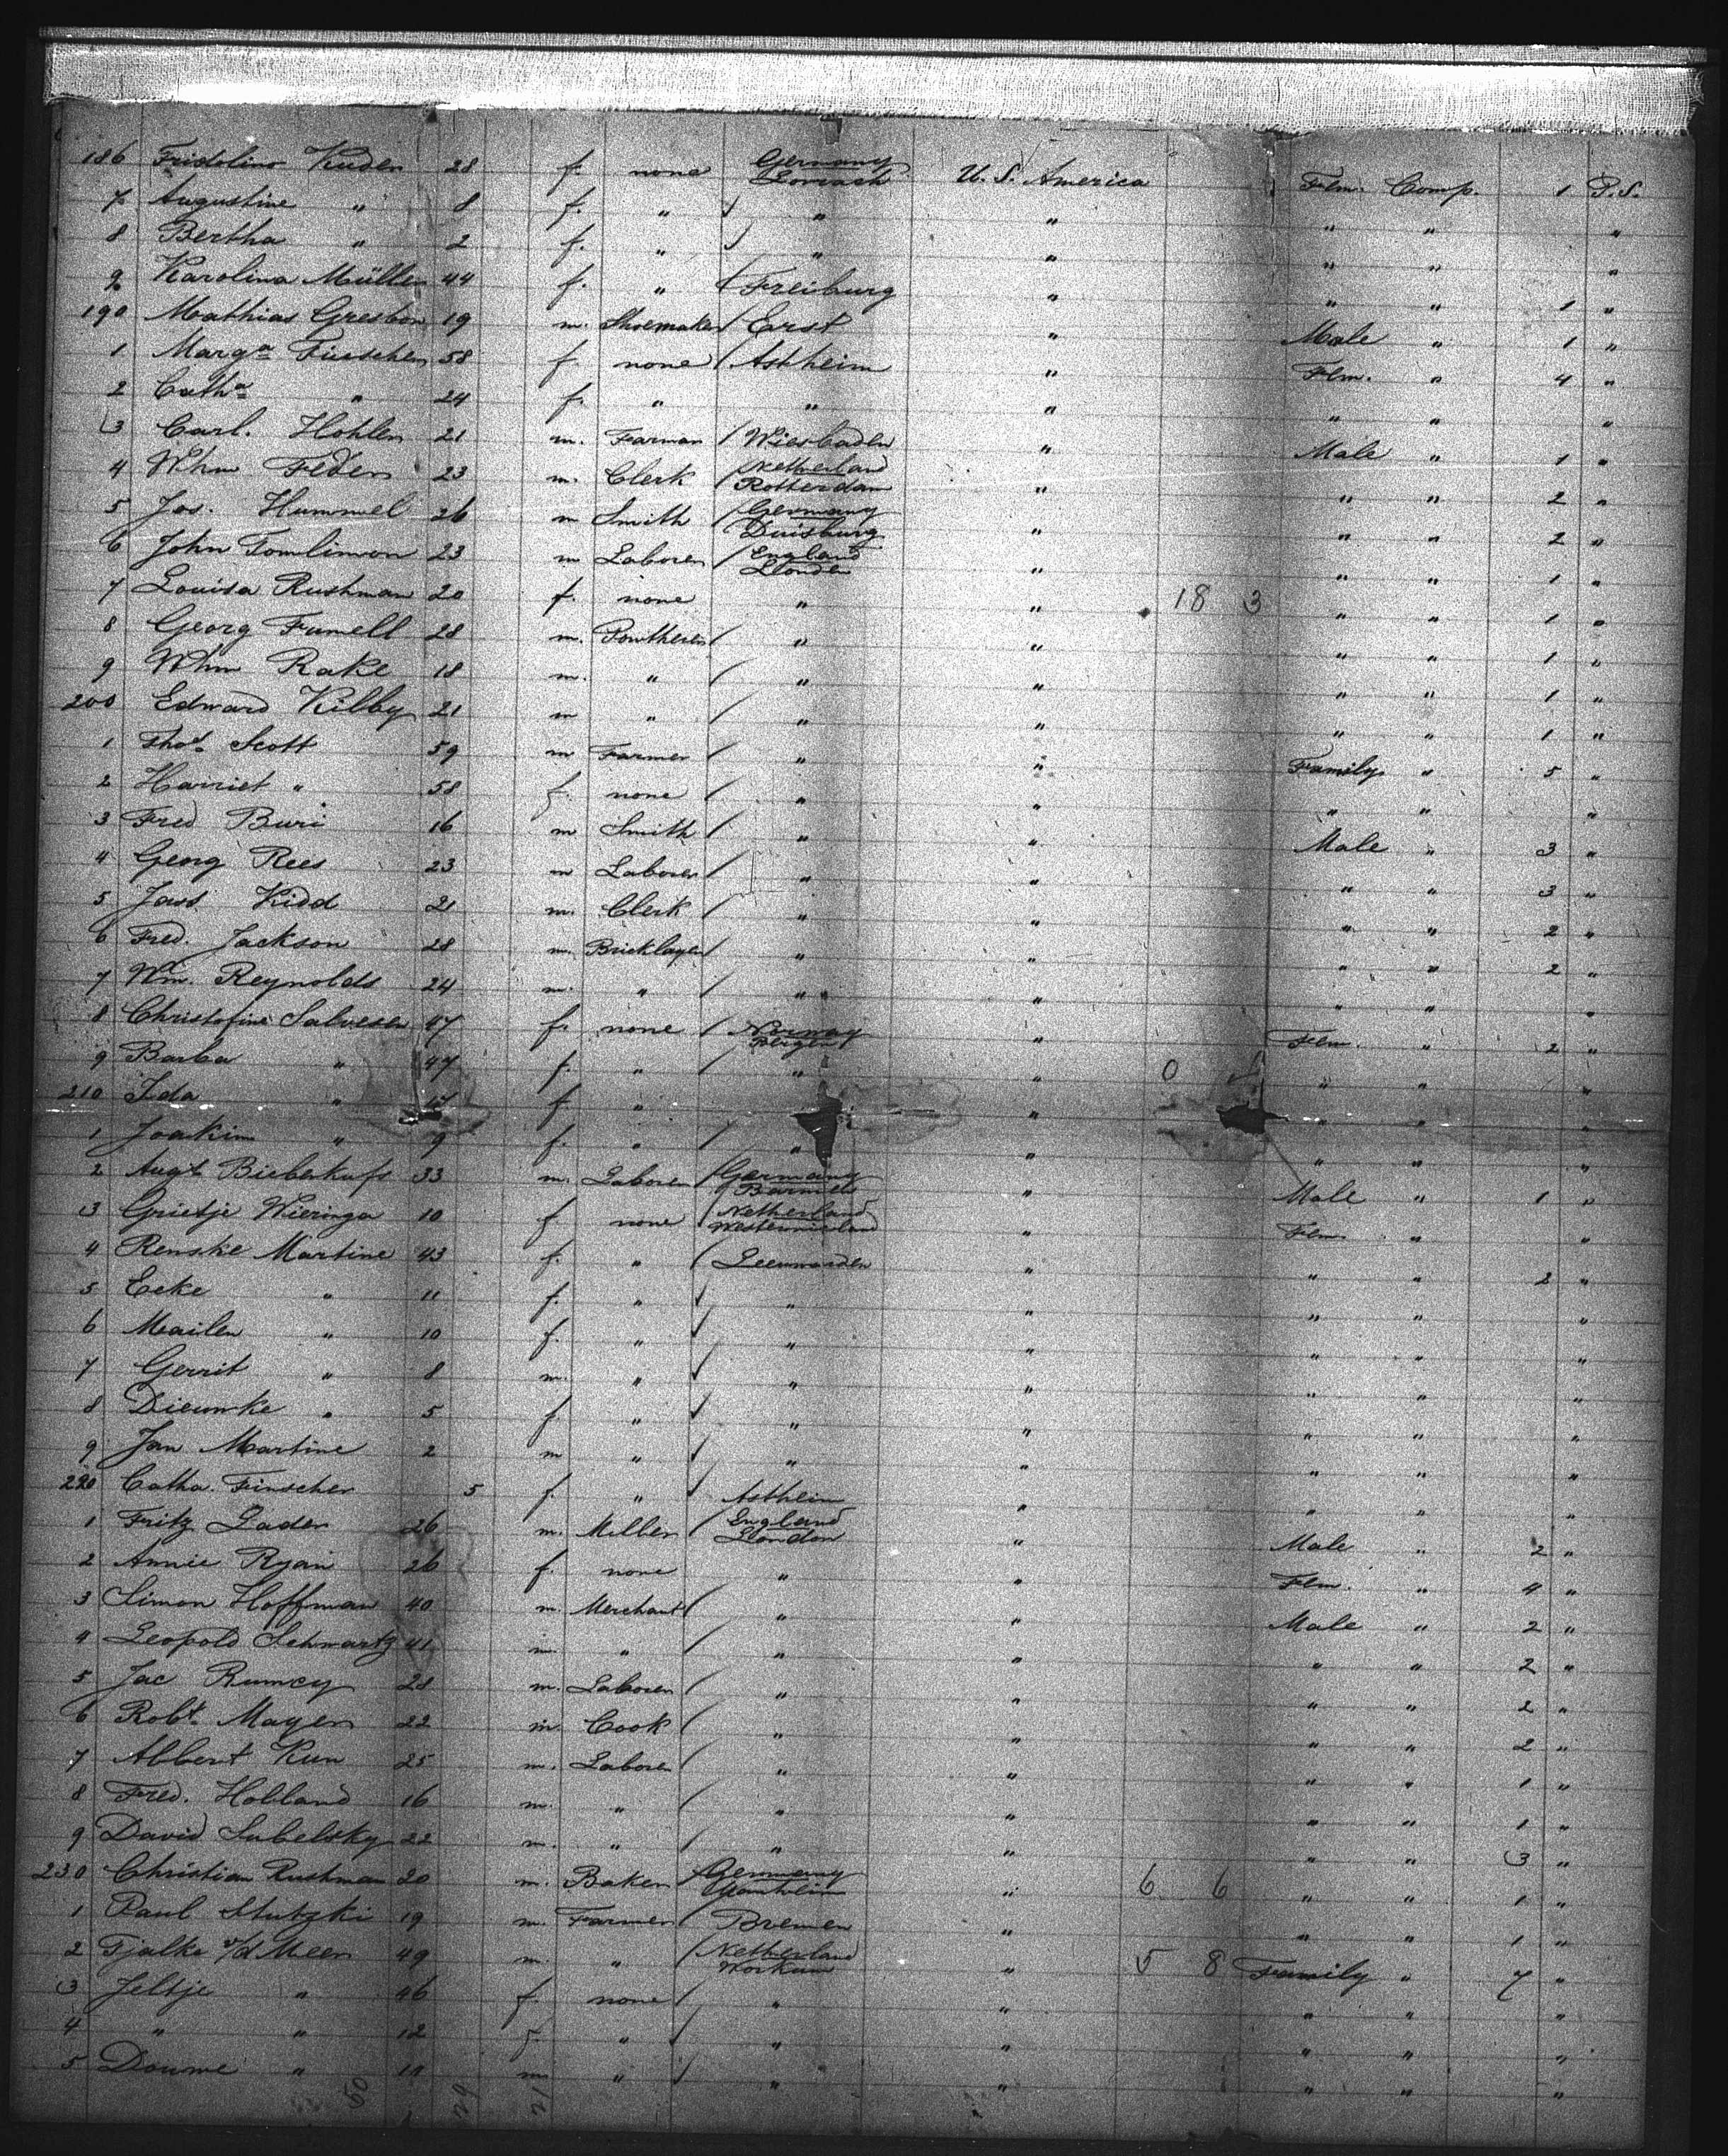 186 Fridolino Kuder 28 f. none Germany Lorrach U. S. America Fem. Comp. 1 P.S.
7 Augustine " 8 f. " " " " " "
8 Bertha " 2 f. " " " " " "
9 Karolina Müller 44 f. " Freiburg " " " 1 "
190 Mathias Gresbon 19 m. Shoemaker Erst " Male " 1 "
1 Marga Fuescher 58 f. none Astheim " Fem. " 4 "
2 Catha " 24 f. " " " " " "
3 Carl. Hohlen 21 m. Farmer Wiesbaden " Male " 1 "
4 Whm Feder 23 m. Clerk Netherland Rotterdam " " " 2 "
5 Jos. Hummel 26 m Smith Germany Duisburg " " " 2 "
6 John Tomlinson 23 m Laborer England London " " " 1 "
7 Louisa Rushman 20 f. none " " 18 3 " " 1 "
8 Georg Fumell 28 m. " " " " 1 "
9 Whm Rake 18 m. " " " " " 1 "
200 Edward Kilby 21 m " " " " " 1 "
1 Thos Scott 59 m Farmer " " Family " 5 "
2 Harriet " 58 f. none " " " " "
3 Fred Buri 16 m Smith " " Male " 3 "
4 Georg Rees 23 m Laborer " " " " 3 "
5 Jass Kidd 21 m. Clerk " " " " 2 "
6 Fred. Jackson 28 m. Bricklayer " " " " 2 "
7 Wm. Reynolds 24 m. " " " " " "
8 Christofine Salvesen 47 f. none Norway Bergen " Fem. " 2 "
9 Barba " 47 f. " " " 0 " " "
210 Ida " 17 f. " " " " "
1 Joakim " 9 f. " " " " " "
2 Augt Bieberkufs 33 m. Laborer Germany Barmels " Male " 1 "
3 Grietje Wieringa 10 f. none Netherland " Fem. " "
4 Renske Martine 43 f. " Leeuwarden " " " 2 "
5 Eeke " 11 f. " " " " " "
6 Mailen " 10 f. " " " " " "
7 Gerrit " 8 m. " " " " " "
8 Dieuwke " 5 f. " " " " " "
9 Jan Martine 2 m " " " " " "
220 Catha. Finscher 5 f. " Astheim " " " "
1 Fritz Lader 26 m. Miller England London " Male " 2 "
2 Annie Ryan 26 f. none " " Fem. " 4 "
3 Simon Hoffman 40 m. Merchant " " Male " 2 "
4 Leopold Schwartz 41 m. " " " " " 2 "
5 Jac Rumey 28 m. Laborer " " " " 2 "
6 Robt. Mayer 22 m. Cook " " " " 2 "
7 Albbert Kun 25 m. Laborer " " " " 1 "
8 Fred. Holland 16 m. " " " " " 1 "
9 David Subelsky 22 m. " " " " " 3 "
230 Christian Rushman 20 m. Baker Germany " 6 6 " " 1 "
1 Paul Stutzki 19 m. Farmer Bremen " " " 1 "
2 Tjalke v/d Meer 49 m. " Netherland Workum " 5 8 Family " 7 "
3 Jeltje " 46 f. none " " " " "
4 " " 12 f. " " " " " "
5 Douwe " 11 m. " " " " " "
50 29 21